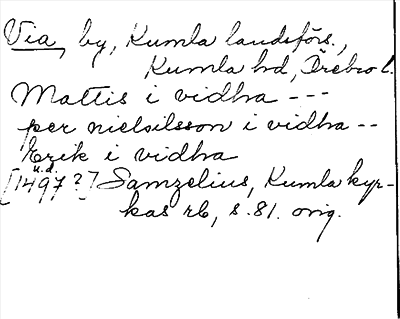 Via, by, Kumla landsförs.,
Kumla hd, Örebro l.
Mattis i vidha ---
per nielsilsson i vidha --
Erik i vidha
u.d.
[1497?] Samzelius, Kumla kyr-
kas rb, s. 81. orig.